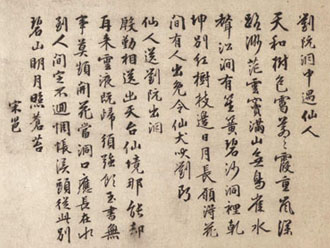 劉阮洞中遇仙人
天和樹色靄蒼々霞重嵐深
路渺茫雲實滿山無鳥雀水
聲沿澗有笙簧碧沙洞裡乾
坤別紅樹枝邊日月長願得花
間有人出免令仙犬吠劉郎
仙人送劉阮出洞
殷勤相送出天台仙境那能卻
再來雲液既歸須強飲玉書無
事莫頻開花當洞口應長在水
到人間定不迴惆悵溪頭從此別
碧山明月照蒼苔
宋邕